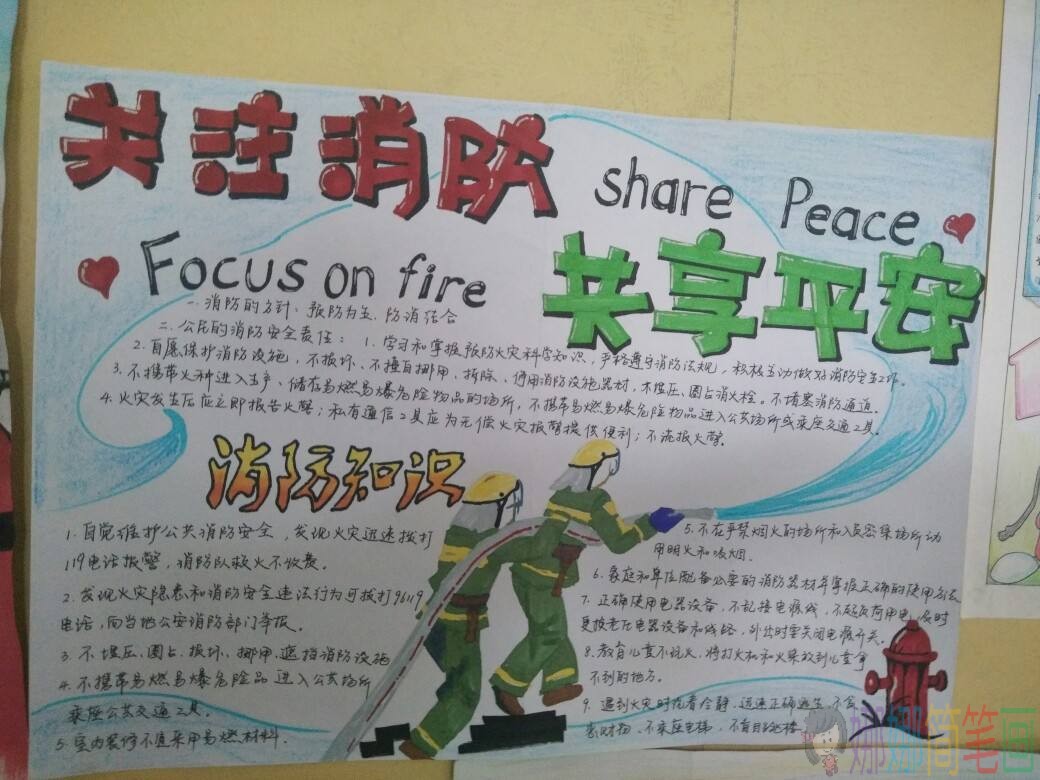 关注消防
share Peace
Focus on fire
共享平安
一. 消防的方针、预防为主、防消结合
二. 公民的消防安全责任： 1. 学习和掌握预防火灾科学知识，严格遵守消防法规，积极主动做好消防安全工作。
2. 自愿保护消防设施，不损坏、不擅自挪用、拆除、停用消防设施器材，不埋压、圈占消火栓。不堵塞消防通道。
3. 不携带火种进入生产、储存易燃易爆危险物品的场所，不携带易燃易爆危险物品进入公共场所或乘座交通工具。
4. 火灾发生后应立即报告火警；私有通信工具应为无偿火灾报警提供便利；不谎报火警。
消防知识
1. 自觉维护公共消防安全，发现火灾迅速拨打
119电话报警，消防队救火不收费。
2. 发现火灾隐患和消防安全违法行为可拨打96119
电话，向当地公安消防部门举报。
3. 不埋压、圈占、损坏、挪用、遮挡消防设施
4. 不携带易燃易爆危险品进入公共场所
乘座公共交通工具。
5. 室内装修不宜采用易燃材料.
5. 不在严禁烟火的场所和人员密集场所动
用明火和吸烟.
6. 家庭和单位配备必要的消防器材并掌握正确的使用方法
7. 正确使用电器设备，不乱接电源线，不超负荷用电，及时
更换老化电器设备和线路，外出时要关闭电源开关.
8. 教育儿童不玩火，将打火机和火柴放到儿童拿
不到的地方.
9. 遇到火灾时沉着冷静，迅速正确逃生，不贪
恋财物、不乘座电梯、不盲目跳楼
娜娜简笔画